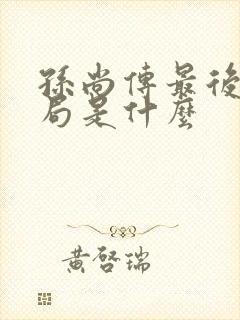 孫尚傅最後
局是什麼
黃啓瑞